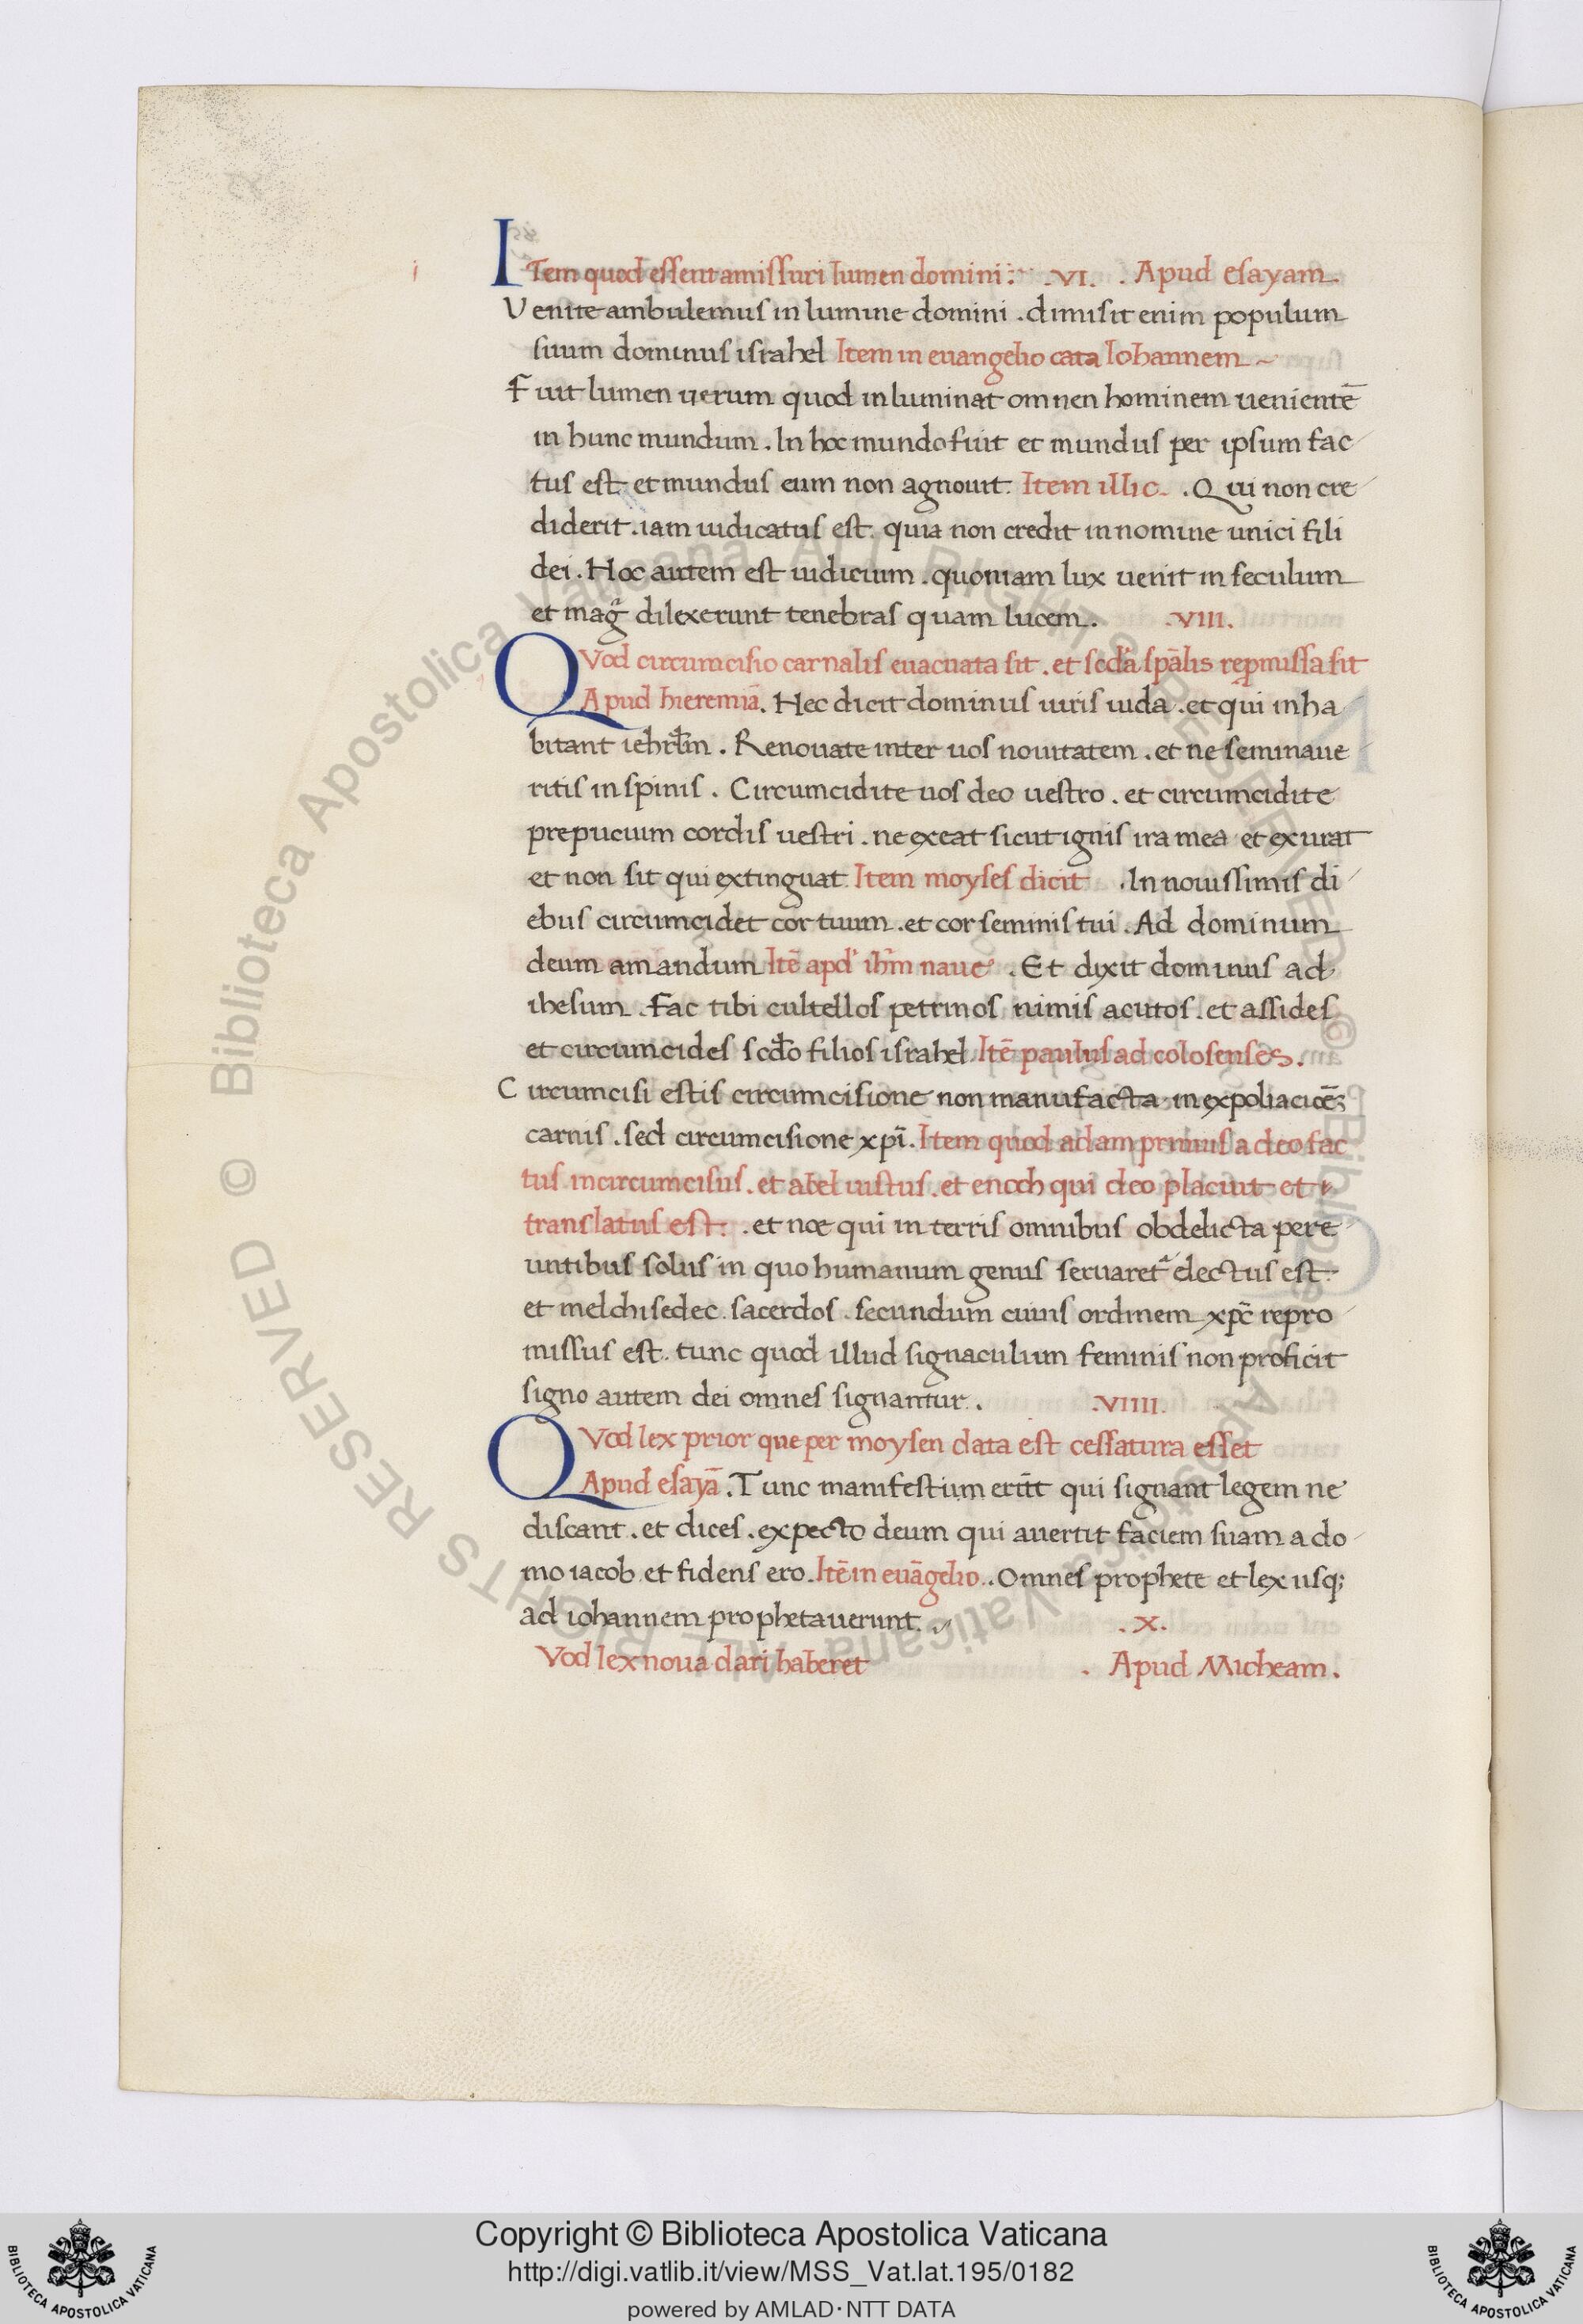 i
ITem quod essent amissuri lumen domini : .VI. . Apud esayam.
Venite ambulemus in lumine domini . dimisit enim populum
suum dominus israhel Item in euangelio cata Iohannem ~
Fuit lumen uerum quod inluminat omnen hominem uenientē
in hunc mundum . In hoc mundo fuit et mundus per ipsum fac
tus est et mundus eum non agnouit. Item illic. . Qui non cre
diderit . iam iudicatus est. quia non credit in nomine unici fili
dei . Hoc autem est iudicium . quoniam lux uenit in seculum
et mag̃ dilexerunt tenebras quam lucem . .VIII.
QVod circumcisio carnalis euacuata sit . et scd̃a sp̃alis rep̱missa sit
Apud hieremiā. Hec dicit dominus uiris iuda . et qui inha
bitant iehrłm . Renouate inter uos nouitatem . et ne seminaue
ritis in spinis . Circumcidite uos deo uestro . et circumcidite
prepucium cordis uestri . ne exeat sicut ignis ira mea et exurat
et non sit qui extinguat. Item moyses dicit . In nouissimis di
ebus circumcidet cor tuum . et cor seminis tui . Ad dominum
deum amandum Itē apd' ihm̄ naue . Et dixit dominus ad
ihesum . Fac tibi cultellos petrinos nimis acutos . et assides
et circumcides scďo filios israhel. Itē paulus ad colosenses.
Circumcisi estis circumcisione non manufacta in expoliaciōe
carnis . sed circumcisione xpī . Item quod adam primus a deo fac
tus incircumcisus . et abel iustus . et enoch qui deo placuit et
translatus est . . et noe qui in terris omnibus ob delicta pere
untibus solus in quo humanum genus seruaret᷑ electus est.
et melchisedec . sacerdos . secundum cuius ordinem xpc̄ repro
missus est . tunc quod illud signaculum feminis non proficit
signo autem dei omnes signantur . .VIIII.
QVod lex prior que per moysen data est cessatura esset
Apud esayā . Tunc manifestium erūt qui signant legem ne
discant . et dices . expecto deum qui auertit faciem suam a do
mo iacob et fidens ero . Itē in euāgelio . . Omnes prophete et lex usq;
ad iohannem prophetauerunt. . X.
Vod lex noua dari haberet . Apud Micheam .
© Biblioteca Apostolica Vaticana ALL RIGHTS RESERVED © Biblioteca Apostolica Vaticana ALL RIGHTS RESERVED
Copyright © Biblioteca Apostolica Vaticana
http://digi.vatlib.it/view/MSS_Vat.lat.195/0182
powered by AMLAD·NTT DATA
BIBLIOTECA APOSTOLICA VATICANA
BIBLIOTECA APOSTOLICA VATICANA